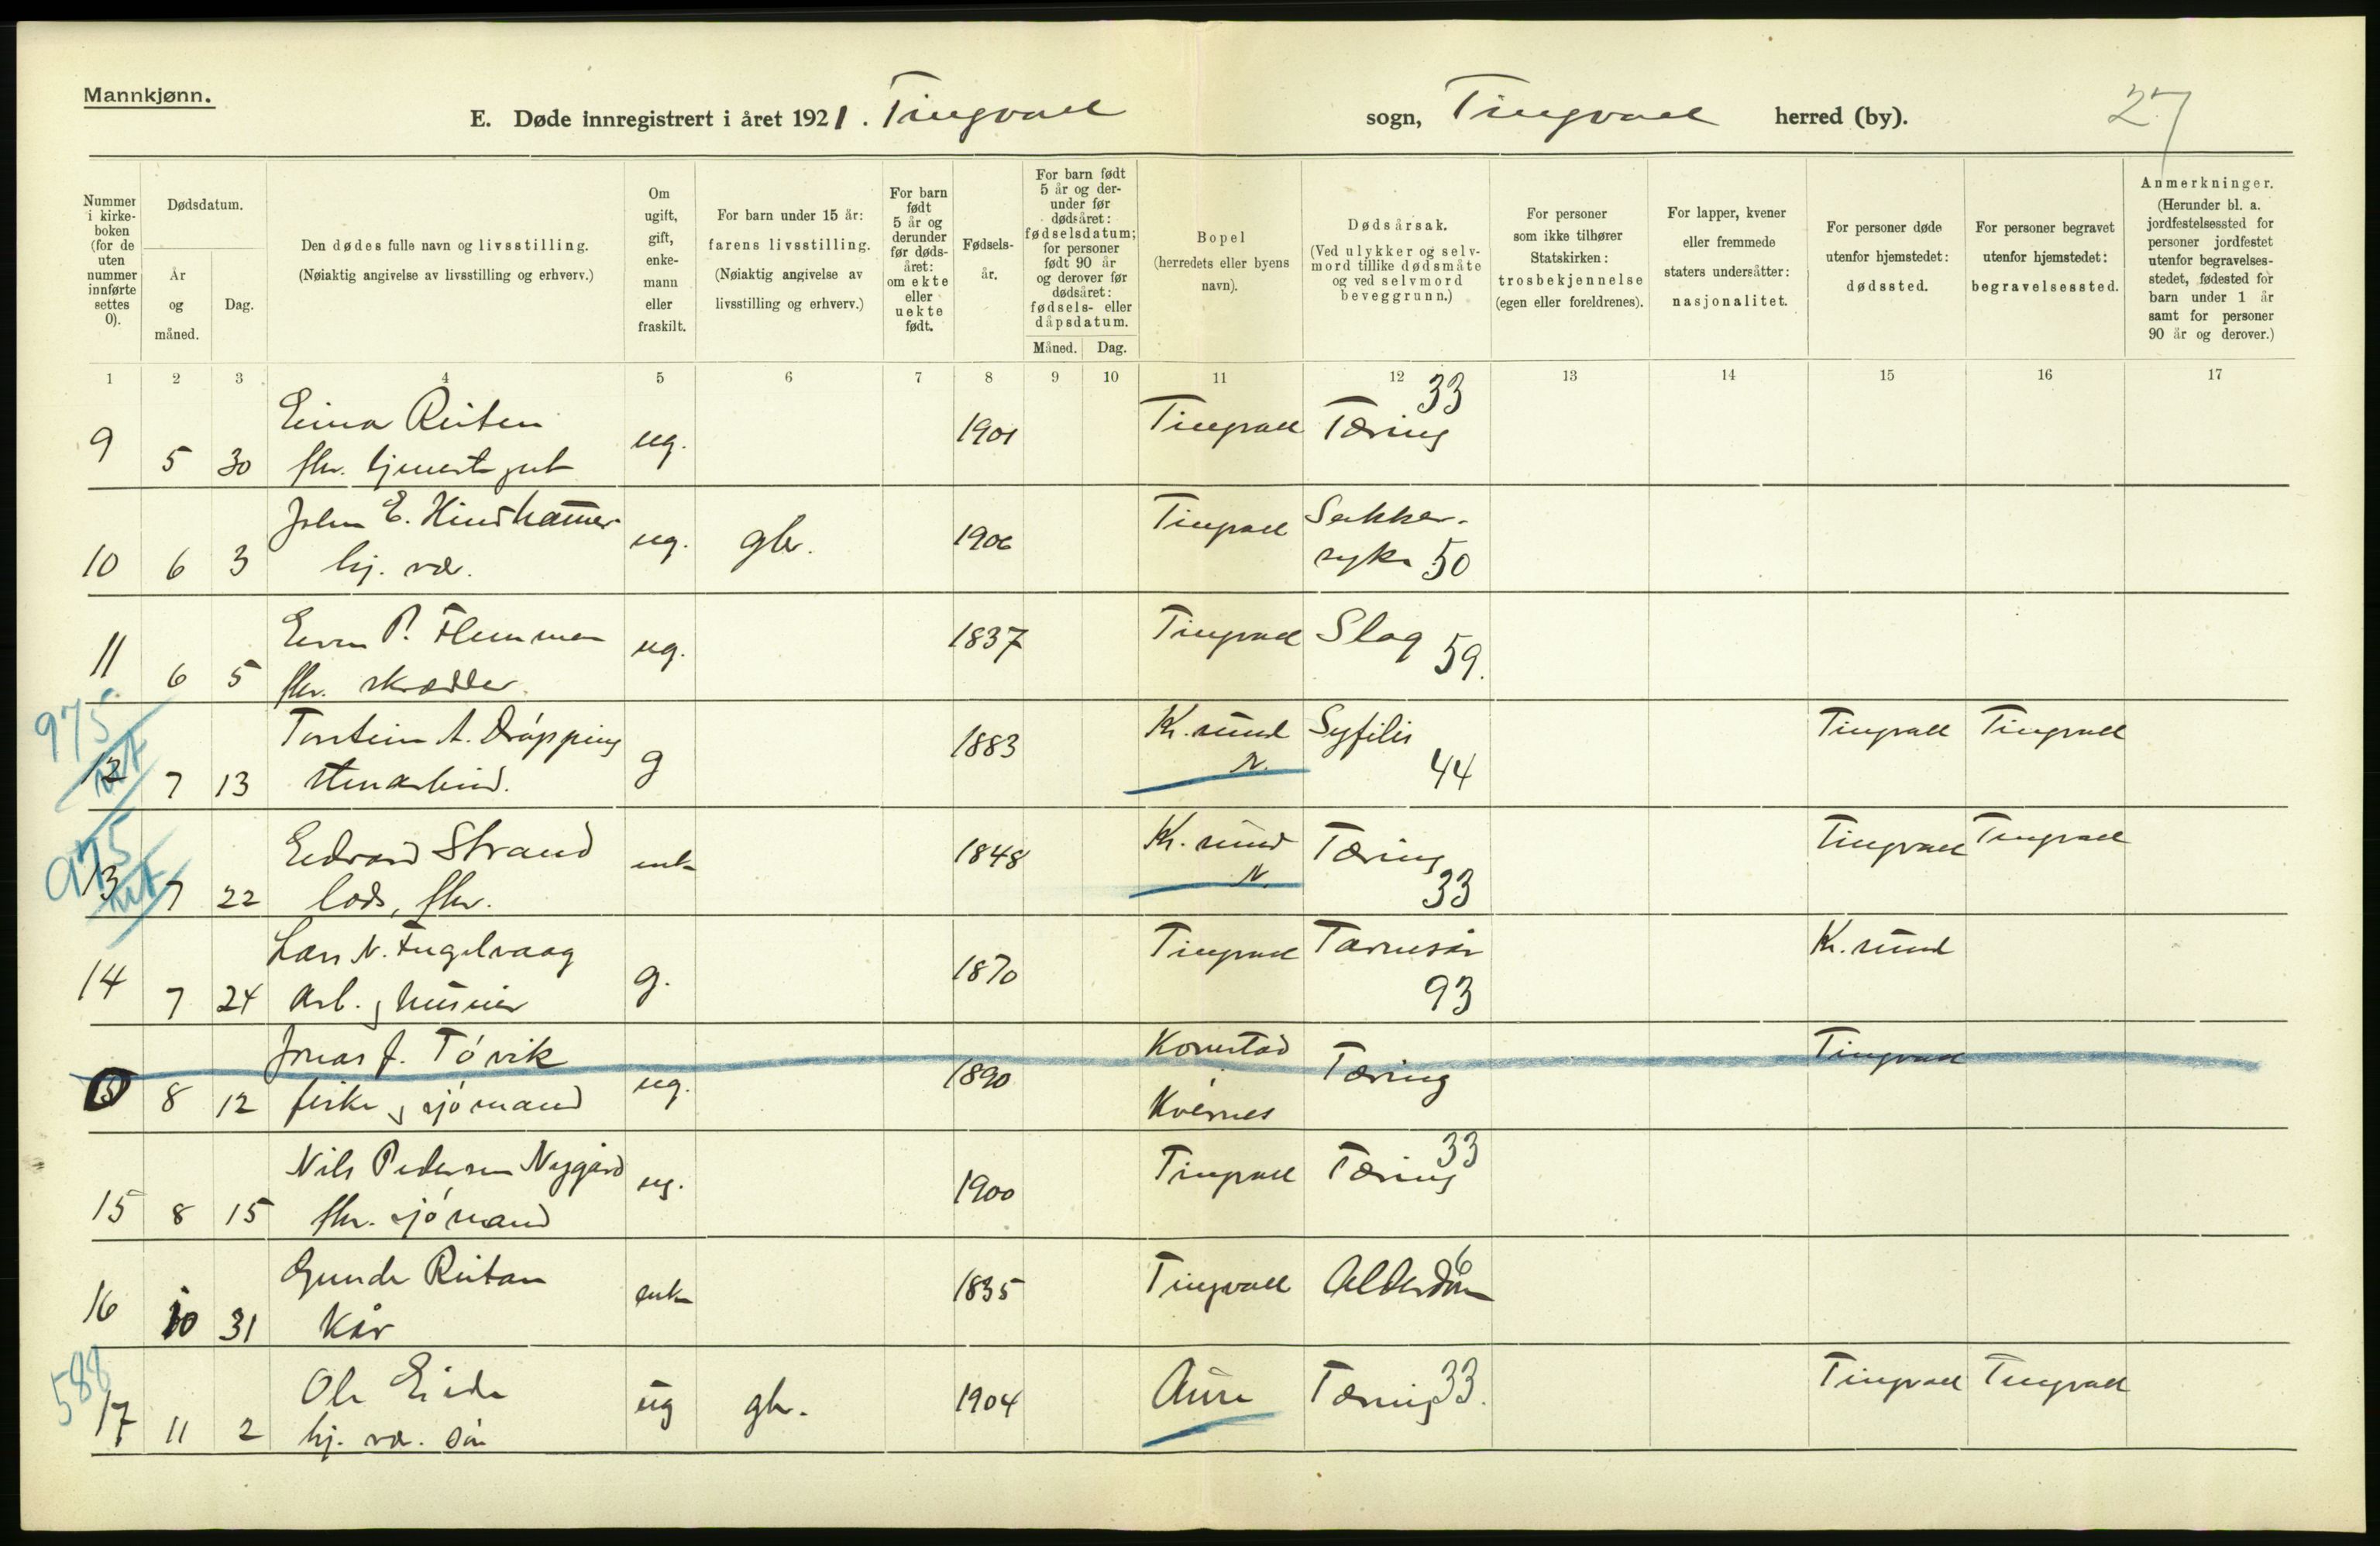 Mannkjønn.
E. Døde innregistrert i året 1921. Tingvoll sogn, Tingvoll herred (by). 27
Nummer i kirke-boken (for de uten nummer innførte settes 0).
Dødsdatum.
År og måned.
Dag.
Den dødes fulle navn og livsstilling.
(Nøiaktig angivelse av livsstilling og erhverv.)
Om ugift, gift, enke-mann eller fraskilt.
For barn under 15 år: farens livsstilling.
(Nøiaktig angivelse av livsstilling og erhverv.)
For barn født 5 år og derunder før døds-året: om ekte eller uekte født.
Fødsels-år.
For barn født 5 år og der-under før dødsåret: fødselsdatum; for personer født 90 år og derover før dødsåret: fødsels- eller dåpsdatum.
Måned. Dag.
Bopel
(herredets eller byens navn).
Dødsårsak.
(Ved ulykker og selv-mord tillike dødsmåte og ved selvmord beveggrunn.)
For personer som ikke tilhører Statskirken: trosbekjennelse (egen eller foreldrenes).
For lapper, kvener eller fremmede staters undersåtter: nasjonalitet.
For personer døde utenfor hjemstedet: dødssted.
For personer begravet utenfor hjemstedet: begravelsessted.
Anmerkninger.
(Herunder bl. a. jordfestelsessted for personer jordfestet utenfor begravelses-stedet, fødested for barn under 1 år samt for personer 90 år og derover.)
1 2 3 4 5 6 7 8 9 10 11 12 13 14 15 16 17
33
9 5 30 ug. 1901 Tingvoll Tæring
fhv.
10 6 3 John E. Hindhammer ug. gbr. 1906 Tingvoll Sukker-
hj. vær. syke 50
11 6 5 Even P. Flemmen ug. 1837 Tingvoll Slag 59.
fhv. skrædder.
975
12 7 13 Torstein A. Drøpping g 1883 Kr.sund N. Syfilis 44 Tingvoll Tingvoll
stenarbeid.
975
13 7 22 Edvard Strand enk 1848 Kr.sund N. Tæring 33 Tingvoll Tingvoll
lods, fhv.
14 7 24 Lars N. Fugelvaag g. 1870 Tingvoll Tarmsår 93 Kr.sund
Arb. huseier
8 12 Jonas J. Tøvik ug. 1890 Kornstad Tæring Tingvoll
fisker sjømand Kvernes
33
15 8 15 Nils Pedersen Nygård ug. 1900 Tingvoll Tæring
fhv. sjømand
6
16 10 31 Reitan enk 1835 Tingvoll Alderdom
kår
588
17 11 2 Ole Eide ug gbr. 1904 Aure Tæring 33. Tingvoll Tingvoll
hj. vær. søn